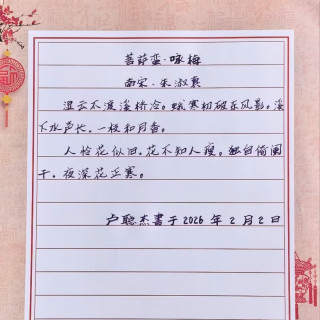 菩萨蛮·咏梅
南宋·朱淑真
湿云不渡溪桥冷。蛾寒初破东风影。溪
下水声长，一枝和月香。
人怜花似旧，花不知人瘦。独自倚阑
干，夜深花正寒。
卢聪杰書于2026年2月2日